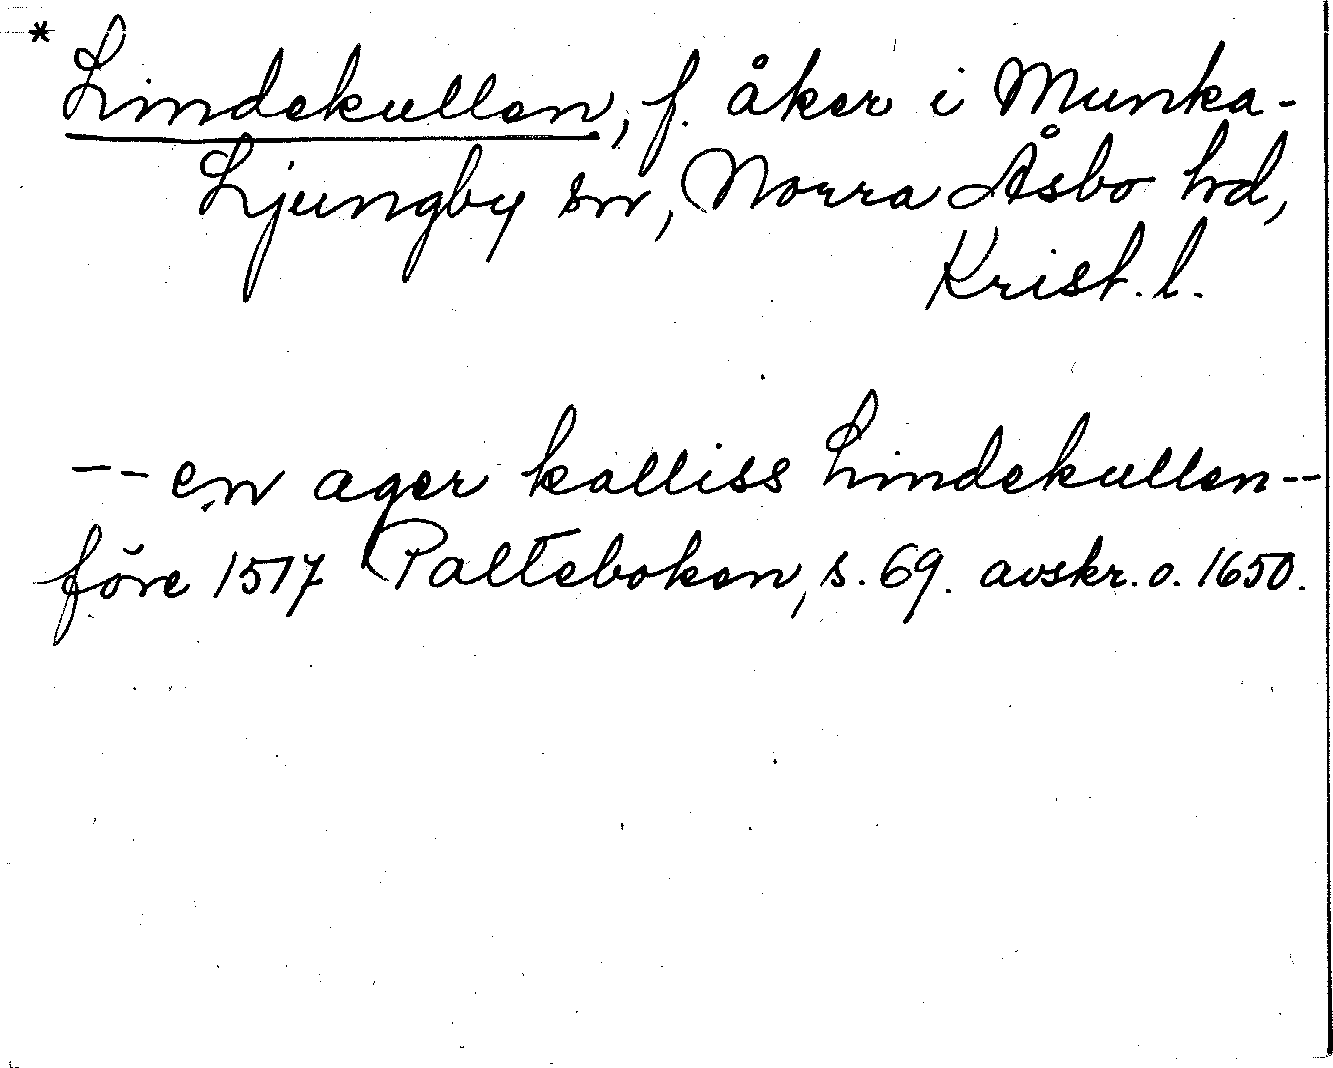 * Lindekullen, f. åker i Munka-
Ljungby sn, Norra Åsbo hd,
Krist. l.
-- en ager kalliss Lindekullen --
före 1517 Palteboken, s. 69. avskr. o. 1650.